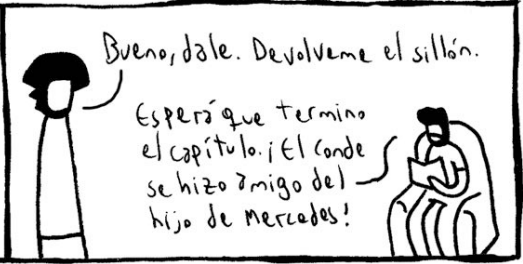 Bueno, dale. Devolveme el sillón.
Esperá que termino
el capítulo. ¡El conde
se hizo amigo del
hijo de Mercedes!